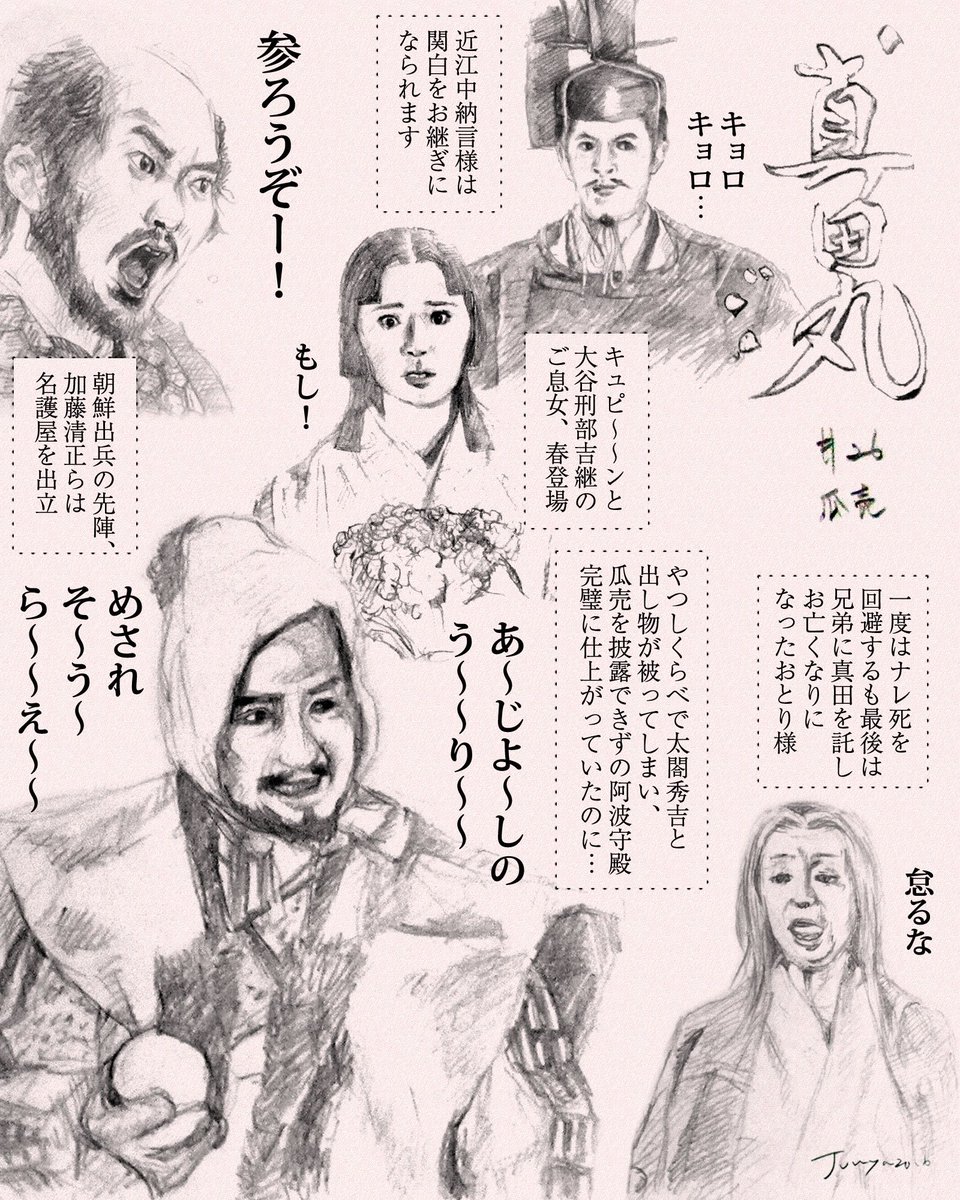 真田丸
#26
瓜売
キョロ
キョロ…
近江中納言様は
関白をお継ぎに
なられます
参ろうぞー！
朝鮮出兵の先陣、
加藤清正らは
名護屋を出立
もし！
キュピ〜〜ンと
大谷刑部吉継の
ご息女、春登場
一度はナレ死を
回避するも最後は
兄弟に真田を託し
お亡くなりに
なったおとり様
怠るな
やつしくらべで太閤秀吉と
出し物が被ってしまい、
瓜売を披露できずの阿波守殿
完璧に仕上がっていたのに…
あ〜じよ〜しの
う〜〜り〜〜
めされ
そ〜う〜
ら〜〜え〜〜
Junya2016